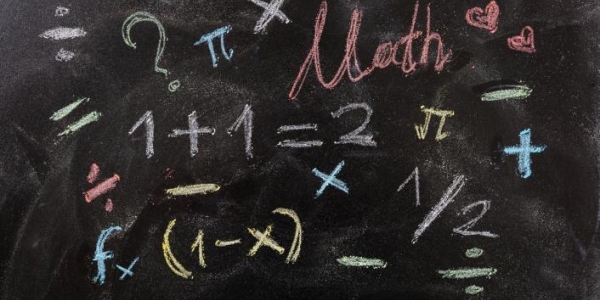 ÷ ? π × Math
= 1+1=2 π − +
÷ − × 1/2
fx (1-x) − ÷